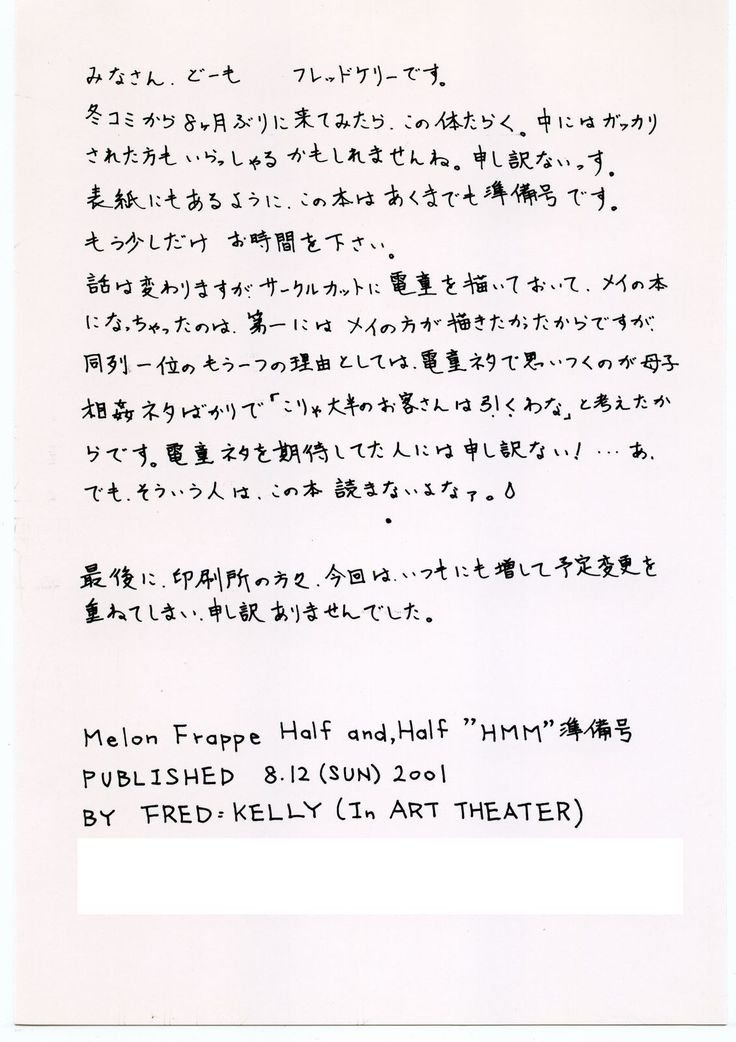 みなさん、どーも　フレッドケリーです。
冬コミから8ヶ月ぶりに来てみたら、この体たらく。中にはガッカリ
された方もいらっしゃるかもしれませんね。申し訳ないっす。
表紙にもあるように、この本はあくまでも準備号です。
もう少しだけ　お時間を下さい。
話は変わりますが、サークルカットに電童を描いておいて、メイの本
になっちゃったのは、第一にはメイの方が描きたかったからですが、
同列一位のもう一つの理由としては、電童ネタで思いつくのが母子
相姦ネタばかりで「こりゃ大半のお客さんは引くわな」と考えたか
らです。電童ネタを期待してた人には申し訳ない！…あ、
でも、そういう人は、この本読まないよなァ。
最後に、印刷所の方々、今回は、いつもにも増して予定変更を
重ねてしまい、申し訳ありませんでした。
Melon Frappe Half and,Half "HMM"準備号
PUBLISHED 8.12 (SUN) 2001
BY FRED=KELLY (In ART THEATER)